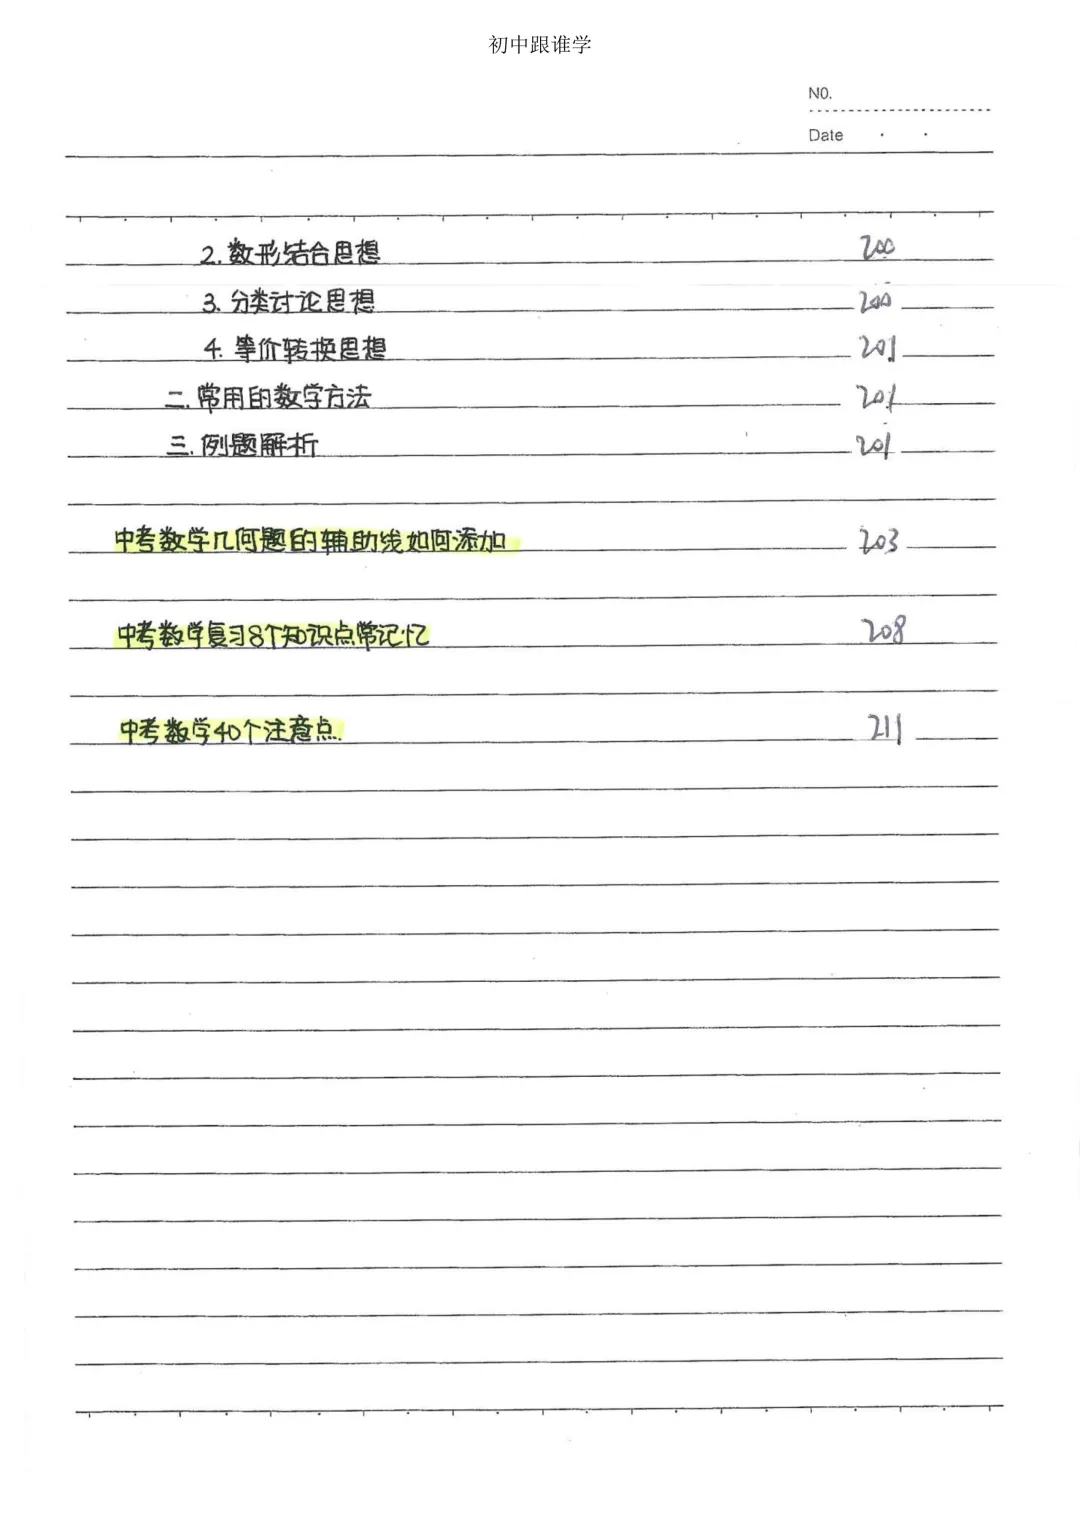 初中跟谁学
NO.
Date
2. 数形结合思想 200
3. 分类讨论思想 200
4. 等价转换思想 201
二. 常用的数学方法 201
三. 例题解析 201
中考数学几何题的辅助线如何添加 203
中考数学复习8个知识点常记忆 208
中考数学40个注意点. 211